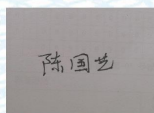 陈国艺